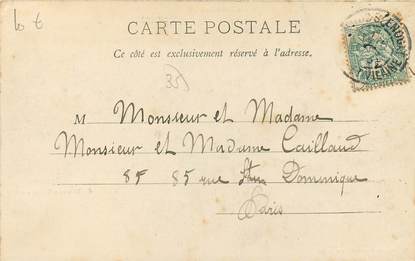 CARTE POSTALE
Ce côté est exclusivement réservé à l'adresse.
35
M Monsieur et Madame
Monsieur et Madame Caillaud
85 rue Dominique
Paris
VIENNE